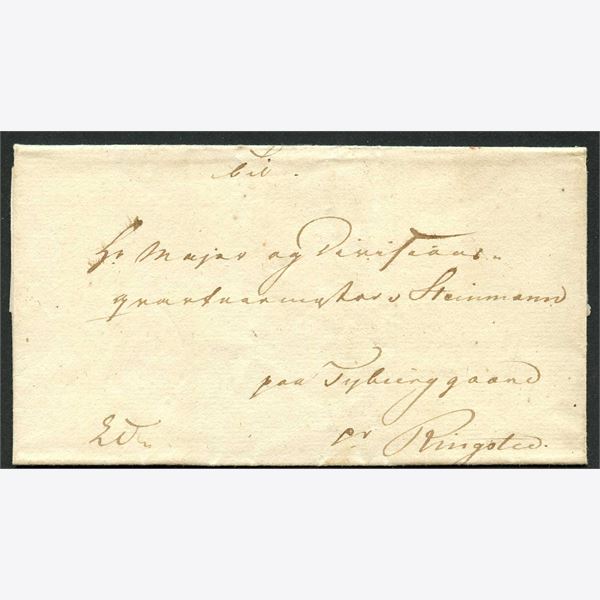 Til.
Hr Major og Divisions-
quarteermester v Steinmann
paa Tybierggaard
pr Ringsted.